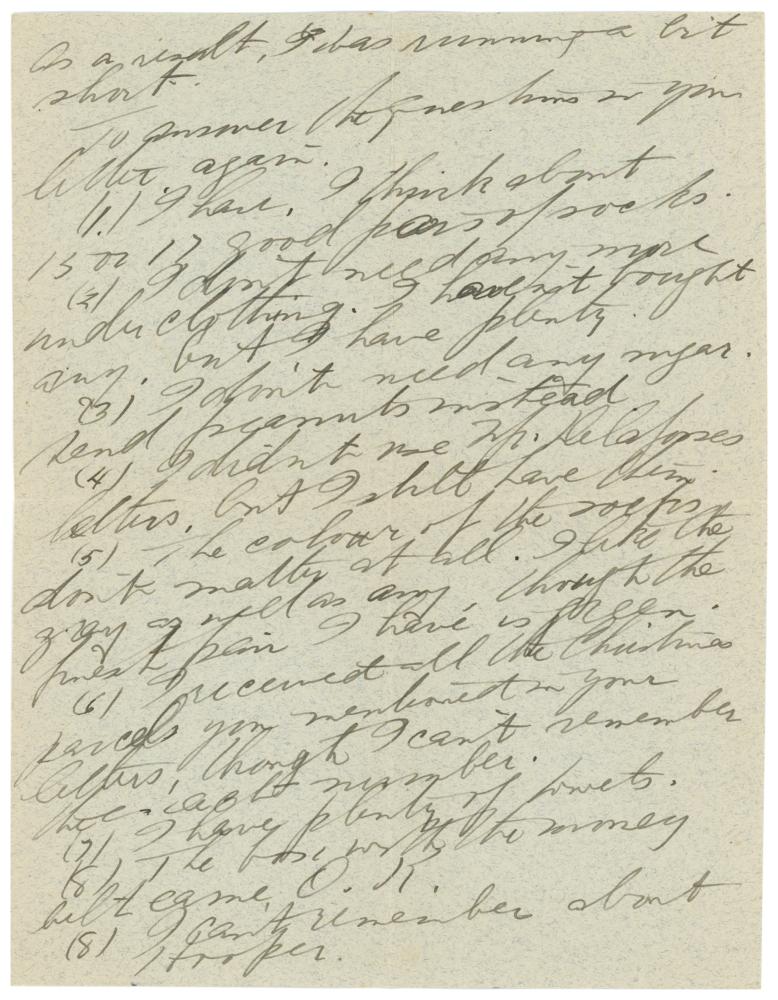 As a result, I was running a bit
short.
To answer the questions in your
letter again.
(1.) I have, I think about
15 or 17 good pairs of socks.
(2) I don't need any more
underclothing. I haven't bought
any, but I have plenty.
(3) I don't need any sugar.
Send peanuts instead
(4) I didn't use Mr.
letters, but I still have them.
(5) The colour of the socks
don't matter at all. I like the
gray as well as any though the
finest pair I have is green.
(6) I received all the Christmas
parcels you mentioned in your
letters, though I can't remember
the exact number.
(7) I have plenty of towels.
(8) The box with the money
belt came, O. K
(8) I can't remember about
Hooper.